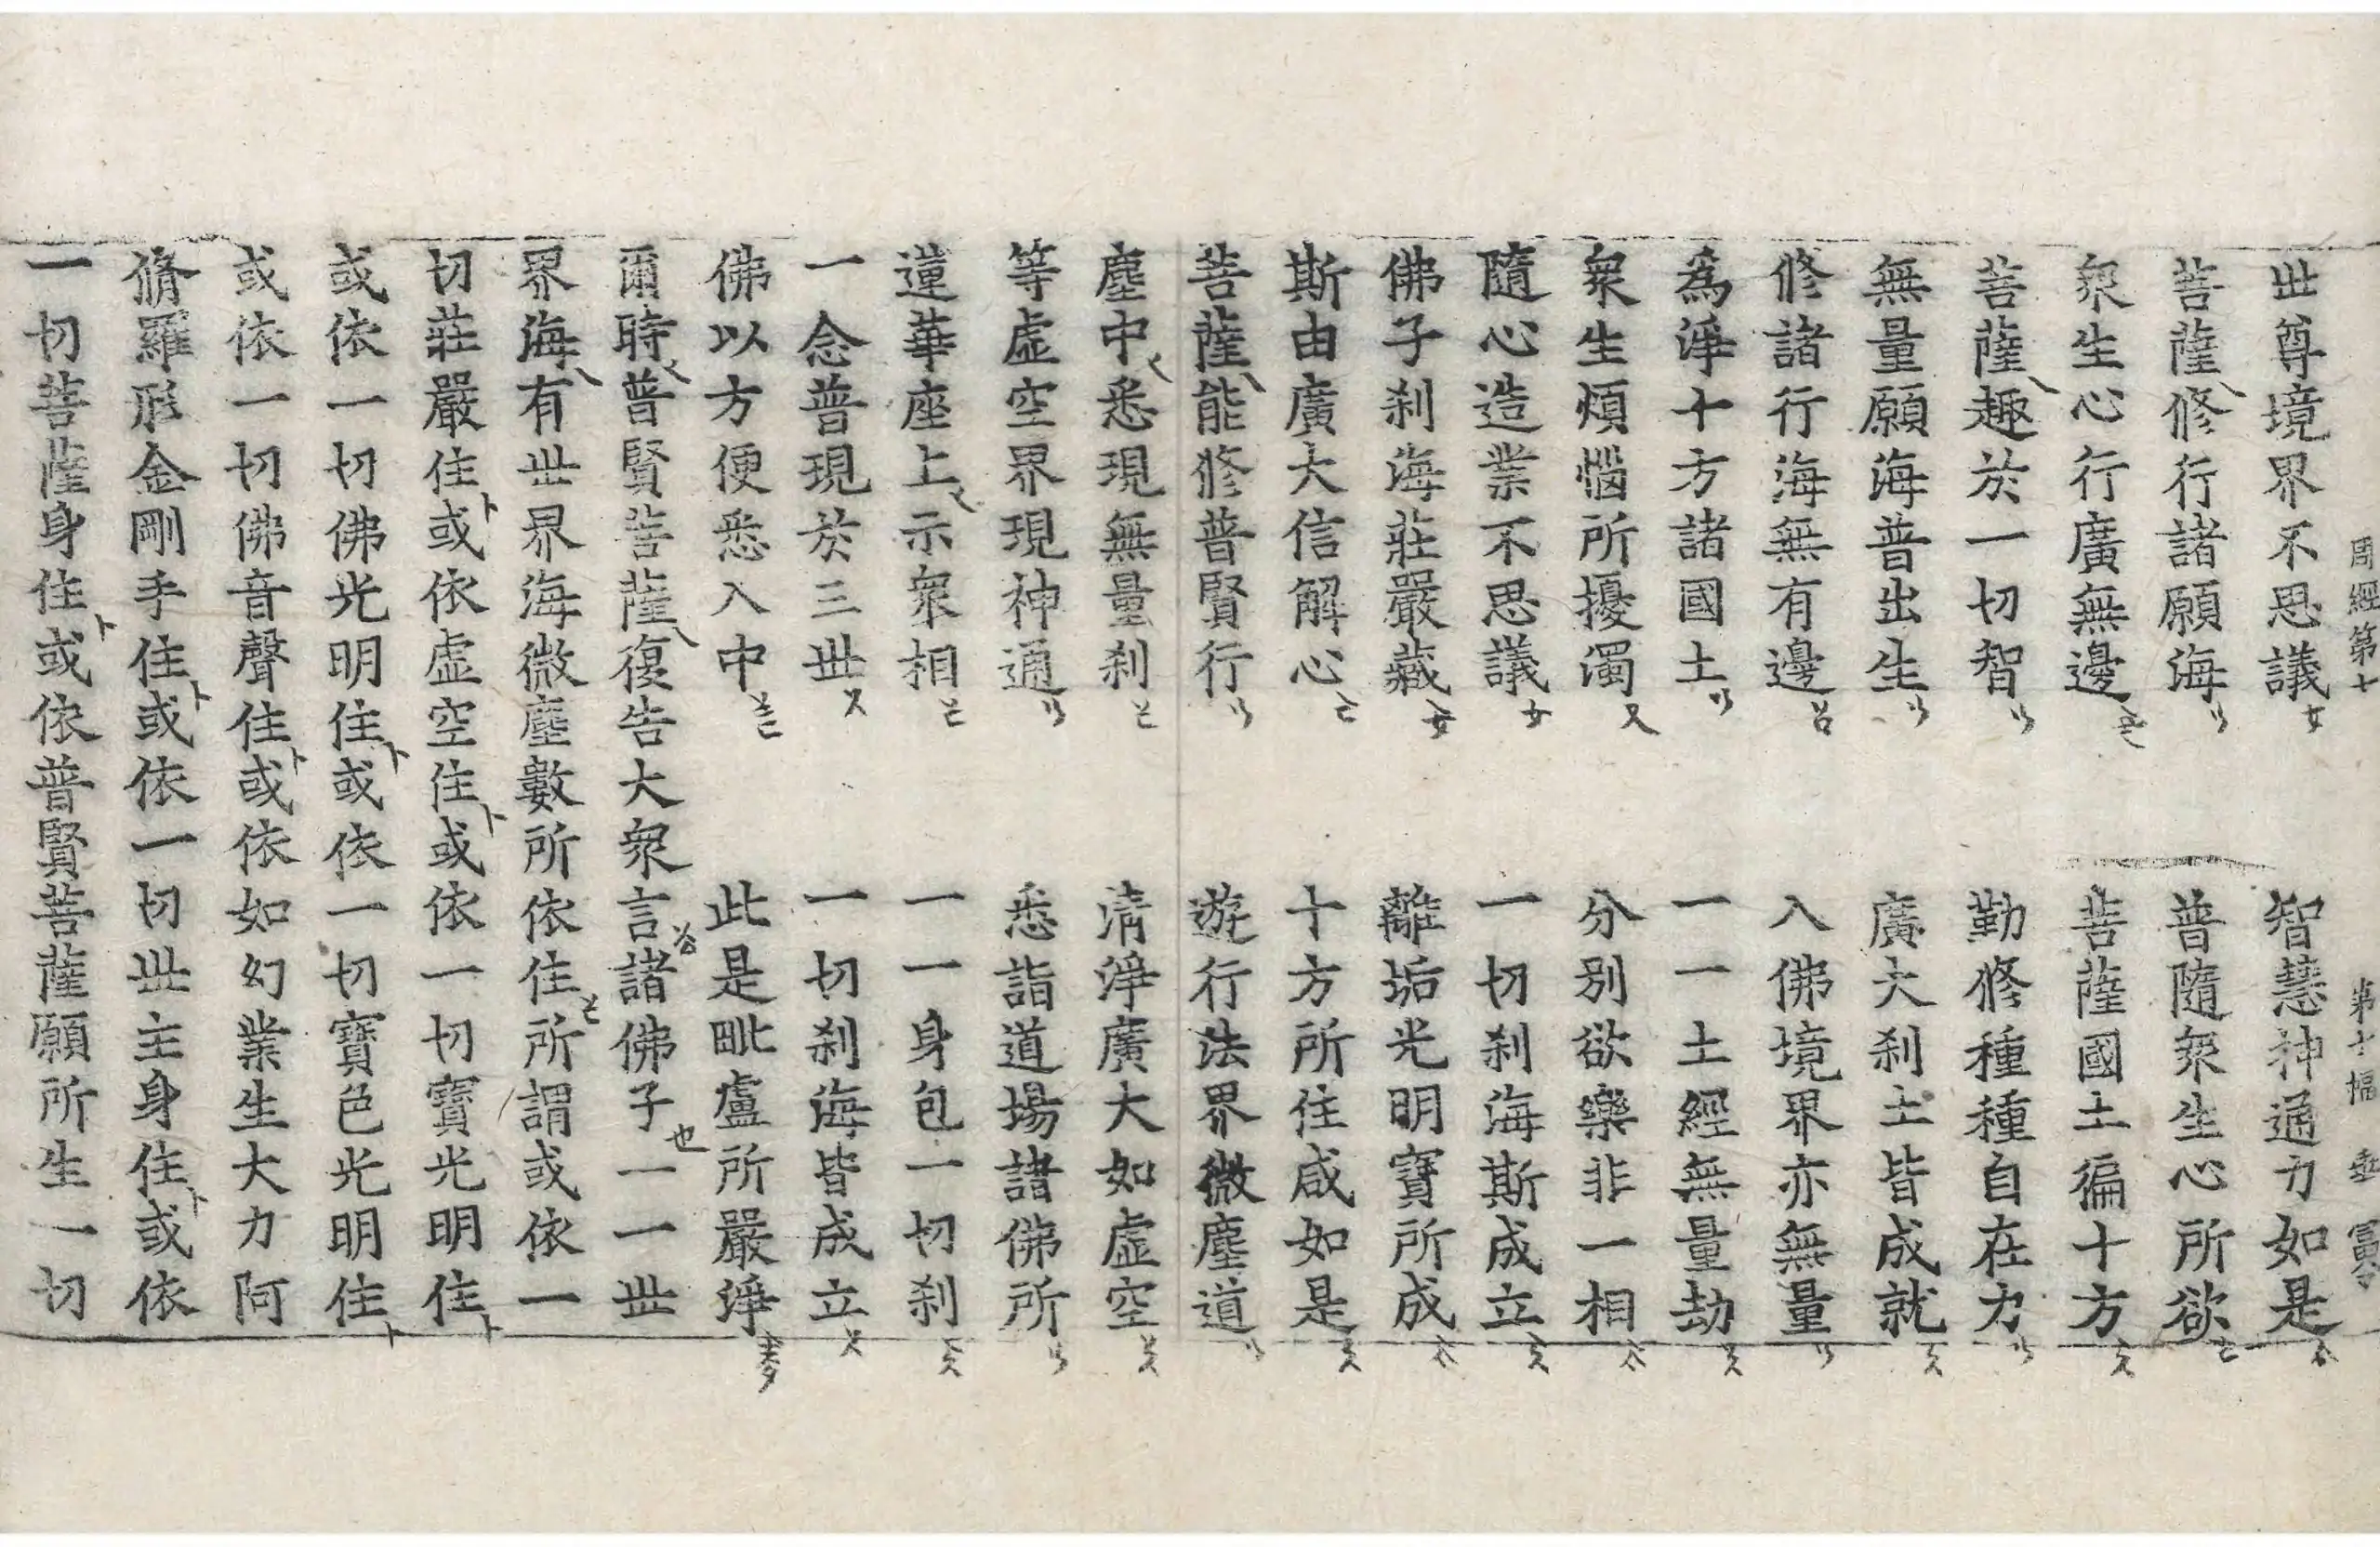 周經第七 第十幅 富
世尊境界不思議 智慧神通力如是
菩薩修行諸願海 普隨衆生心所欲
衆生心行廣無邊 菩薩國土徧十方
菩薩趣於一切智 勤修種種自在力
無量願海普出生 廣大刹土皆成就
修諸行海無有邊 入佛境界亦無量
為淨十方諸國土 一一土經無量劫
衆生煩惱所擾濁 分別欲樂非一相
隨心造業不思議 一切刹海斯成立
佛子刹海莊嚴藏 離垢光明寶所成
斯由廣大信解心 十方所住咸如是
菩薩能修普賢行 遊行法界微塵道
塵中悉現無量刹 清淨廣大如虛空
等虛空界現神通 悉詣道場諸佛所
蓮華座上示衆相 一一身包一切刹
一念普現於三世 一切刹海皆成立
佛以方便悉入中 此是毗盧所嚴淨
爾時普賢菩薩復告大衆言諸佛子一一世
界海有世界海微塵數所依住所謂或依一
切莊嚴住或依虛空住或依一切寶光明住
或依一切佛光明住或依一切寶色光明住
或依一切佛音聲住或依如幻業生大力阿
脩羅形金剛手住或依一切世主身住或依
一切菩薩身住或依普賢菩薩願所生一切